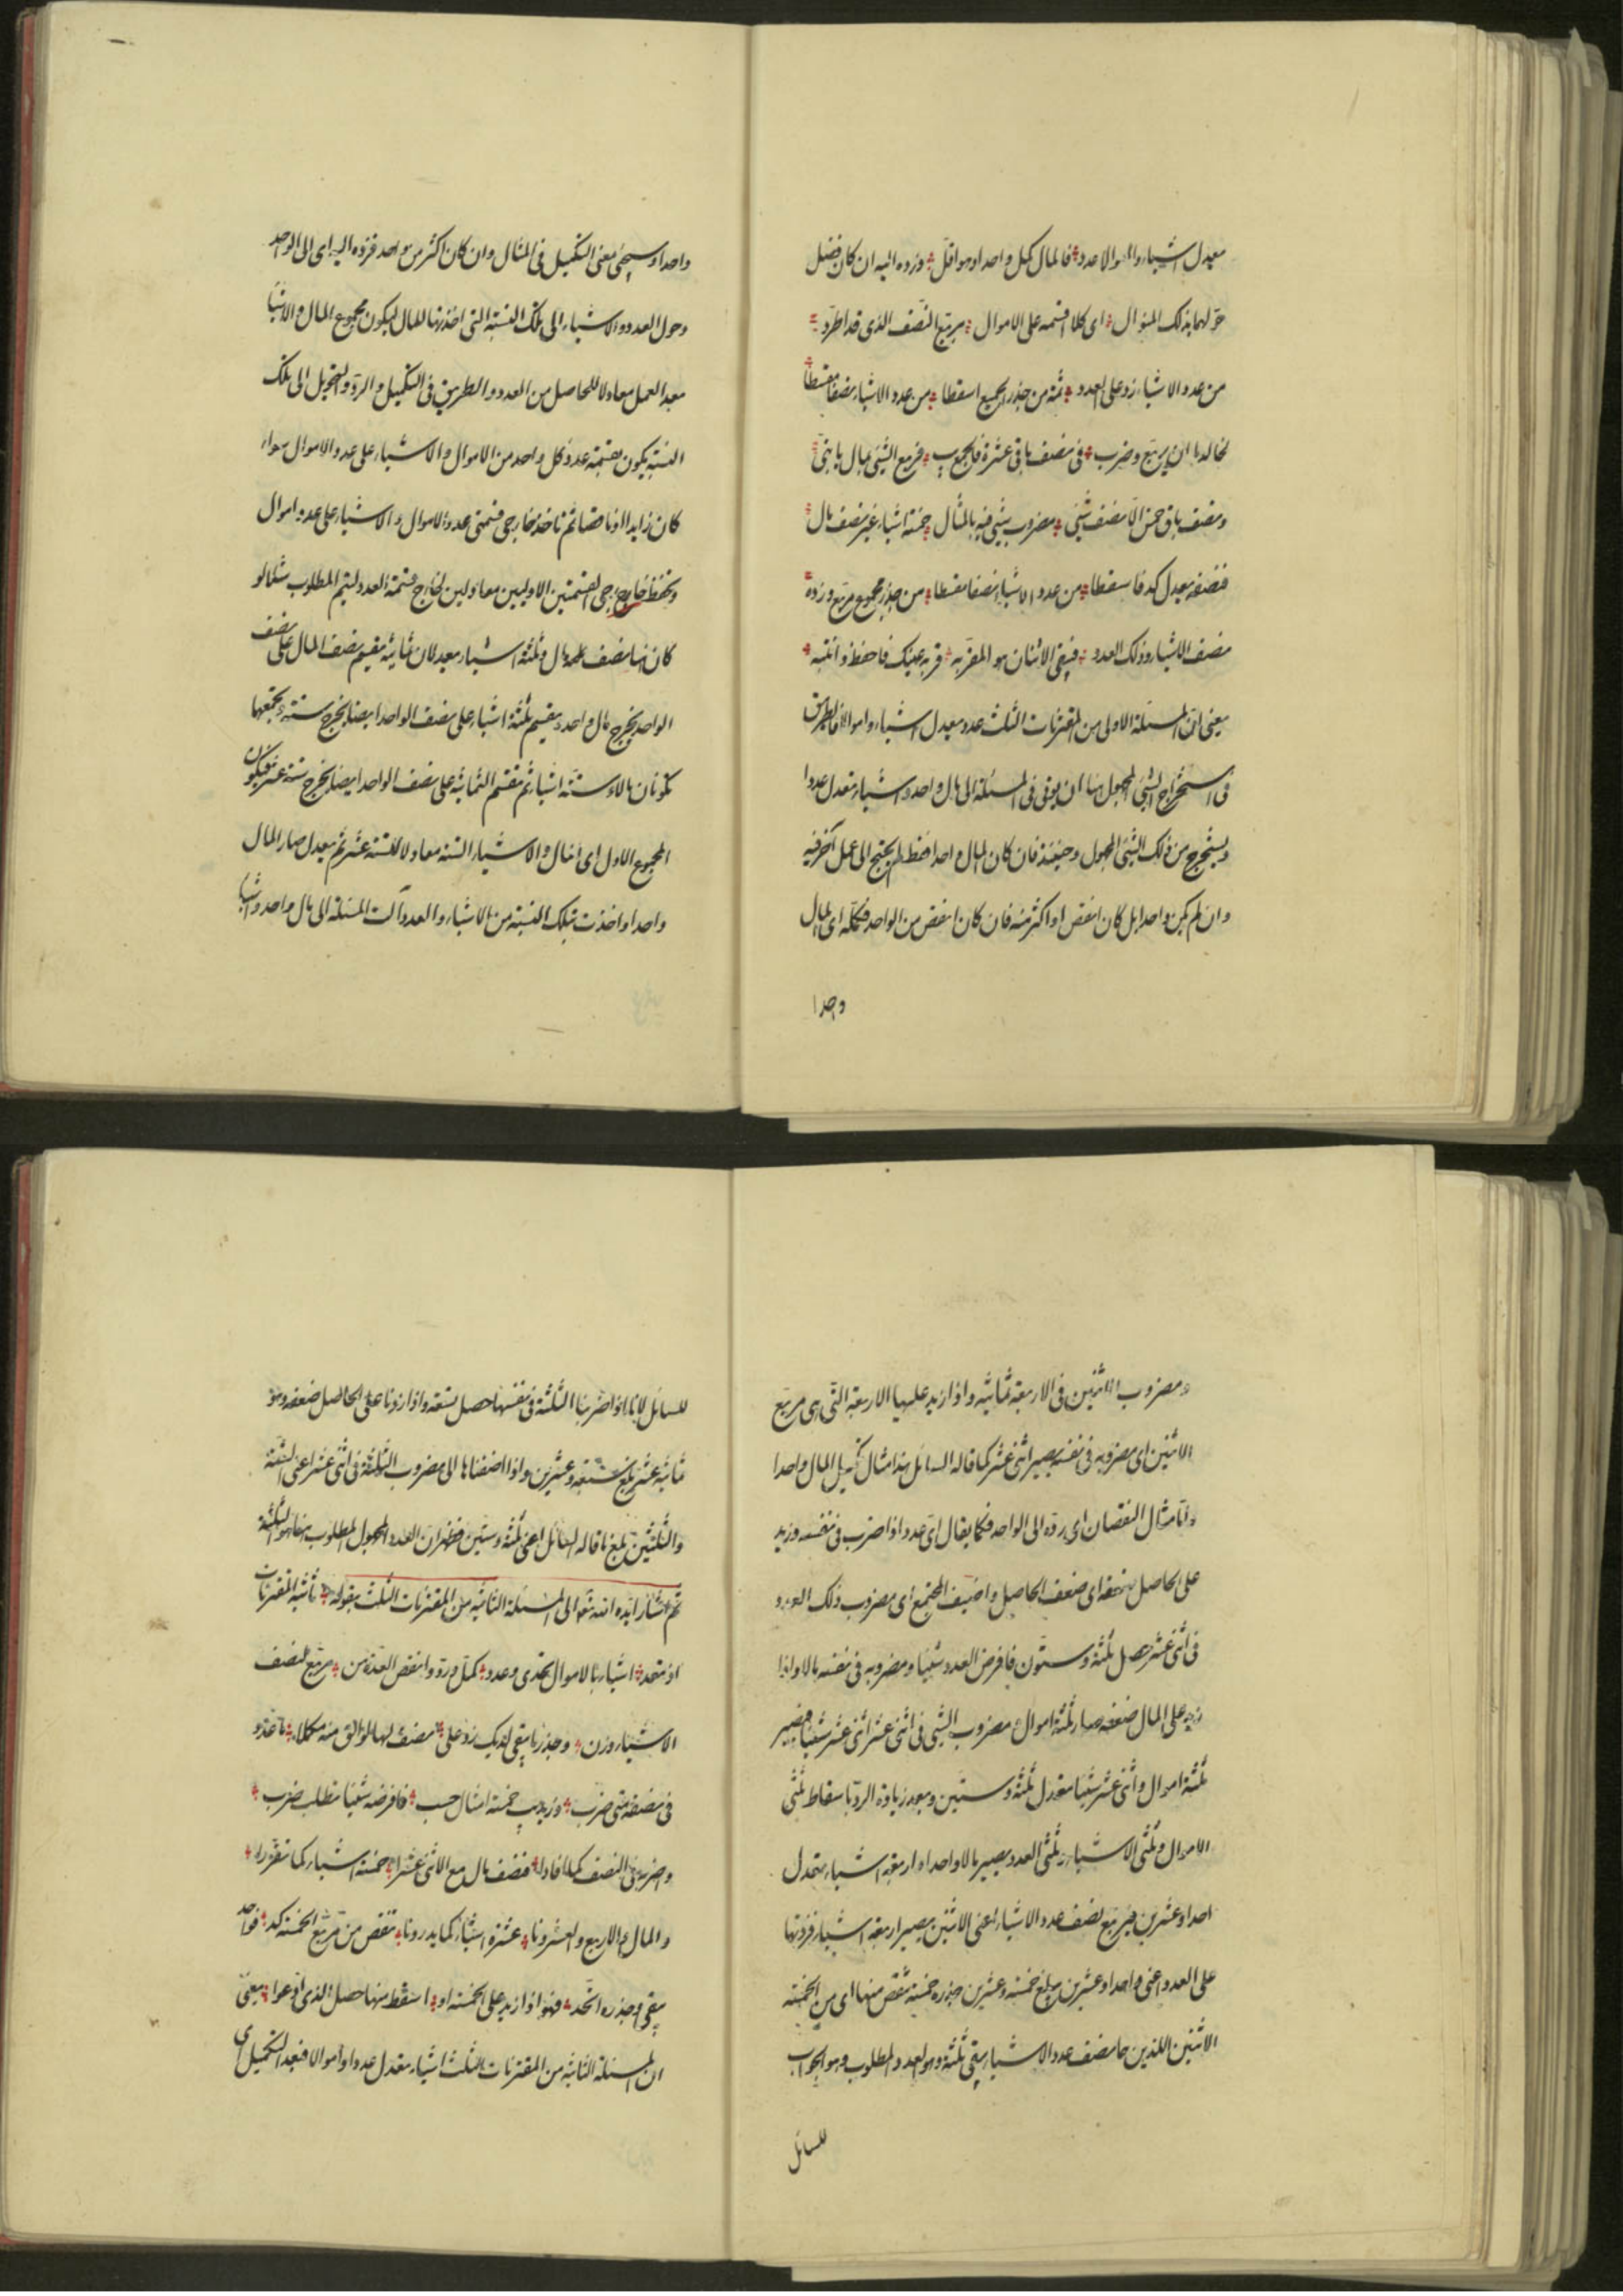 يعدل اشياء والموالا عدد فالمال كمل واحدا وهو اقل ورده اليه ان كان فضل
حولهما بذلك المنوال اى كلا اقسمه على الاموال مربع النصف الذى قد اطرد
من عدد الاشياء زد على العدد ثمة من جذر الجميع اسقطا من عدد الاشياء نصفا مقسطا
ان يربع وضرب فى نصف باقى عشرة فالمجوب فربع الشئ بمال يا بنى
ونصف باق خمس الا نصف شئ مضروب شئ فيه بالمثال خمسة اشياء غير نصف مال
فنصفه يعدل كد فاسقطا من عدد الاشياء نصفا مقسطا من جذر مجموع مربع وزده
نصف الاشياء وذلك العدد فيبقى الاثنان هو المقر به قر به عينك فاحفظ وانتبه
يعنى ان المسئلة الاولى من المقترنات الثلث عدد يعدل اشياء واموالا فالطريق
فى استخراج الشئ المجهول منها ان يوتى فى المسئلة الى مال واحد واشياء تعدل عددا
ويستخرج من ذلك الشئ المجهول وحينئذ فان كان المال واحدا فقط لم يحتج الى عمل آخر فيه
وان لم يكن واحدا بل كان انقص او اكثر منه فان كان انقص من الواحد فكمله اى المال
واحدا
واحدا وسيجئ معنى التكميل فى المثال وان كان اكثر من واحد فرده اليه اى الى الواحد
وحول العدد والاشياء الى تلك النسبة التى اخذتها للمال ليكون مجموع المال والاشيا
بعد العمل معادلا للحاصل من العدد والطريق فى التكميل والرد والتحويل الى تلك
النسبة يكون بقسمة عدد كل واحد من الاموال والاشياء على عدد الاموال سواء
كان زايدا او ناقصا ثم تاخذ خارجى قسمتى عدد الاموال والاشياء على عدد اموال
وتحفظ خارجى القسمتين الاوليين معادلين لخارج قسمة العدد ليتم المطلوب مثلا لو
كان هنا نصف مال وثلثة اشياء يعدلان ثمانية نقيم نصف المال على نصف
الواحد يخرج مال واحد ونقيم ثلثة اشياء على نصف الواحد ايضا يخرج ستة ونجمعها
يكونان مالا وستة اشياء ثم نقسم الثمانية على نصف الواحد ايضا يخرج ستة عشر فيكون
المجموع الاول اى المال والاشياء الستة معادلا للستة عشر ثم يعدل صار المال
واحدا واخذت بتلك النسبة من الاشياء والعدد آلت المسئلة الى مال واحد واشيا
ومضروب الاثنين فى الاربعة ثمانية واذا زيد عليها الاربعة التى هى مربع
الاثنين اى مضروبه فى نفسه يصير اثنى عشر كما قاله السائل هذا مثال تكميل المال واحدا
وامّا مثال النقصان اى رده الى الواحد فكما يقال اى عدد اذا ضرب فى نفسه وزيد
على الحاصل ضعفه اى ضعف الحاصل واضيف المجتمع اى مضروب ذلك العدد
فى اثنى عشر حصل ثلثة وستون فافرض العدد شيئا ومضروبه فى نفسه مالا واذا
زيد على المال ضعفه صار ثلثة اموال ومضروب الشئ فى اثنى عشر اثنى عشر شيئا فيصير
ثلثة اموال واثنى عشر شيئا تعدل ثلثة وستين وبعد زيادة الرد باسقاط ثلثى
الاموال وثلثى الاشياء وثلثى العدد يصير مالا واحدا واربعة اشياء تعدل
احدا وعشرين فمربع نصف عدد الاشياء اعنى الاثنين يصير اربعة اشياء فزدتها
على العدد اعنى واحدا وعشرين يبلغ خمسة وعشرين جذره خمسة تنقص منها اى من الخمسة
الاثنين اللذين هما نصف عدد الاشياء يبقى ثلثة وهو العدد المطلوب وهو الجواب
للسائل
للسائل لانا اذا ضربنا الثلثة فى نفسها حصل تسعة واذا زدنا على الحاصل ضعفه وهو
ثمانية عشر يبلغ سبعة وعشرين واذا اضفناها الى مضروب الثلثة فى اثنى عشر اعنى الستة
والثلثين يبلغ ما قاله السائل اعنى ثلثة وستين فظهر ان العدد المجهول المطلوب هنا هو الثلثة
ثم اشار ايده الله تعالى الى المسئلة الثانية من المقترنات الثلث بقوله ثانية المقترنات
اذ تعد اشياء بالاموال تحدى وعدد كمل ورد وانقص العدة من مربع لنصف
الاشياء وزن وجذر ما يبقى لديك زد على نصف لها لوالق منه مكملا ما عدد
فى نصفه متى ضرب وزيد يب خمسة امثال حسب فافرضه شيئا تطلب ضرب
واضربه فى النصف كما افادا فنصف مال مع الاثنى عشرا خمسة اشياء كما تقررا
والمال والاربع والعشرونا عشرة اشياء كما يدرونا تنقص من مربع الخمسة كد فواحد
يبقى وجذره اتحد فهو اذا زيد على الخمسة او اسقط منها حصل الذى ادعوا يعنى
ان المسئلة الثانية من المقترنات الثلث اشياء تعدل عددا واموالا فبعد التكميل اى